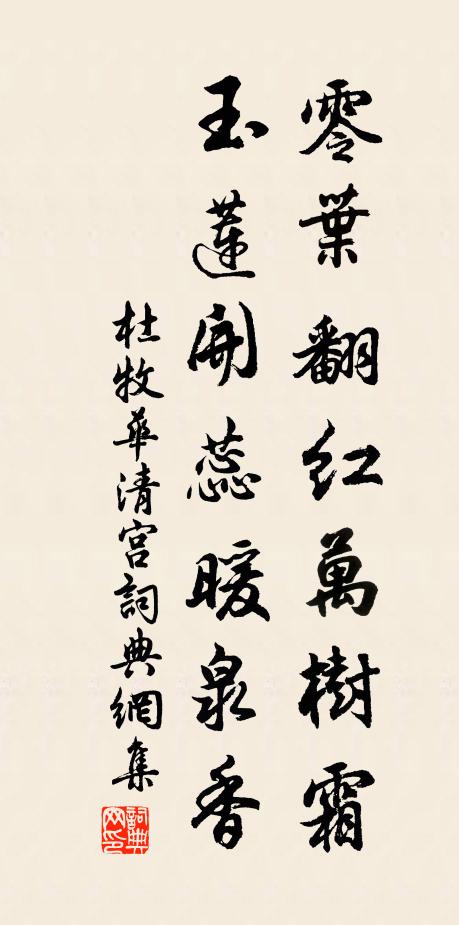 零葉翻紅萬樹霜
玉蓮開蕊暖泉香
杜牧華清宮詞典網集
詞典網印